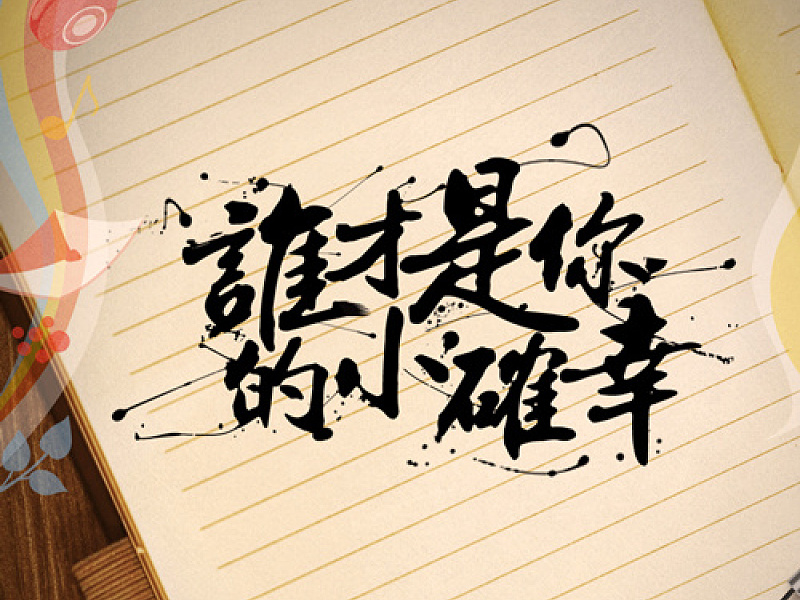 誰才是你
的小確幸